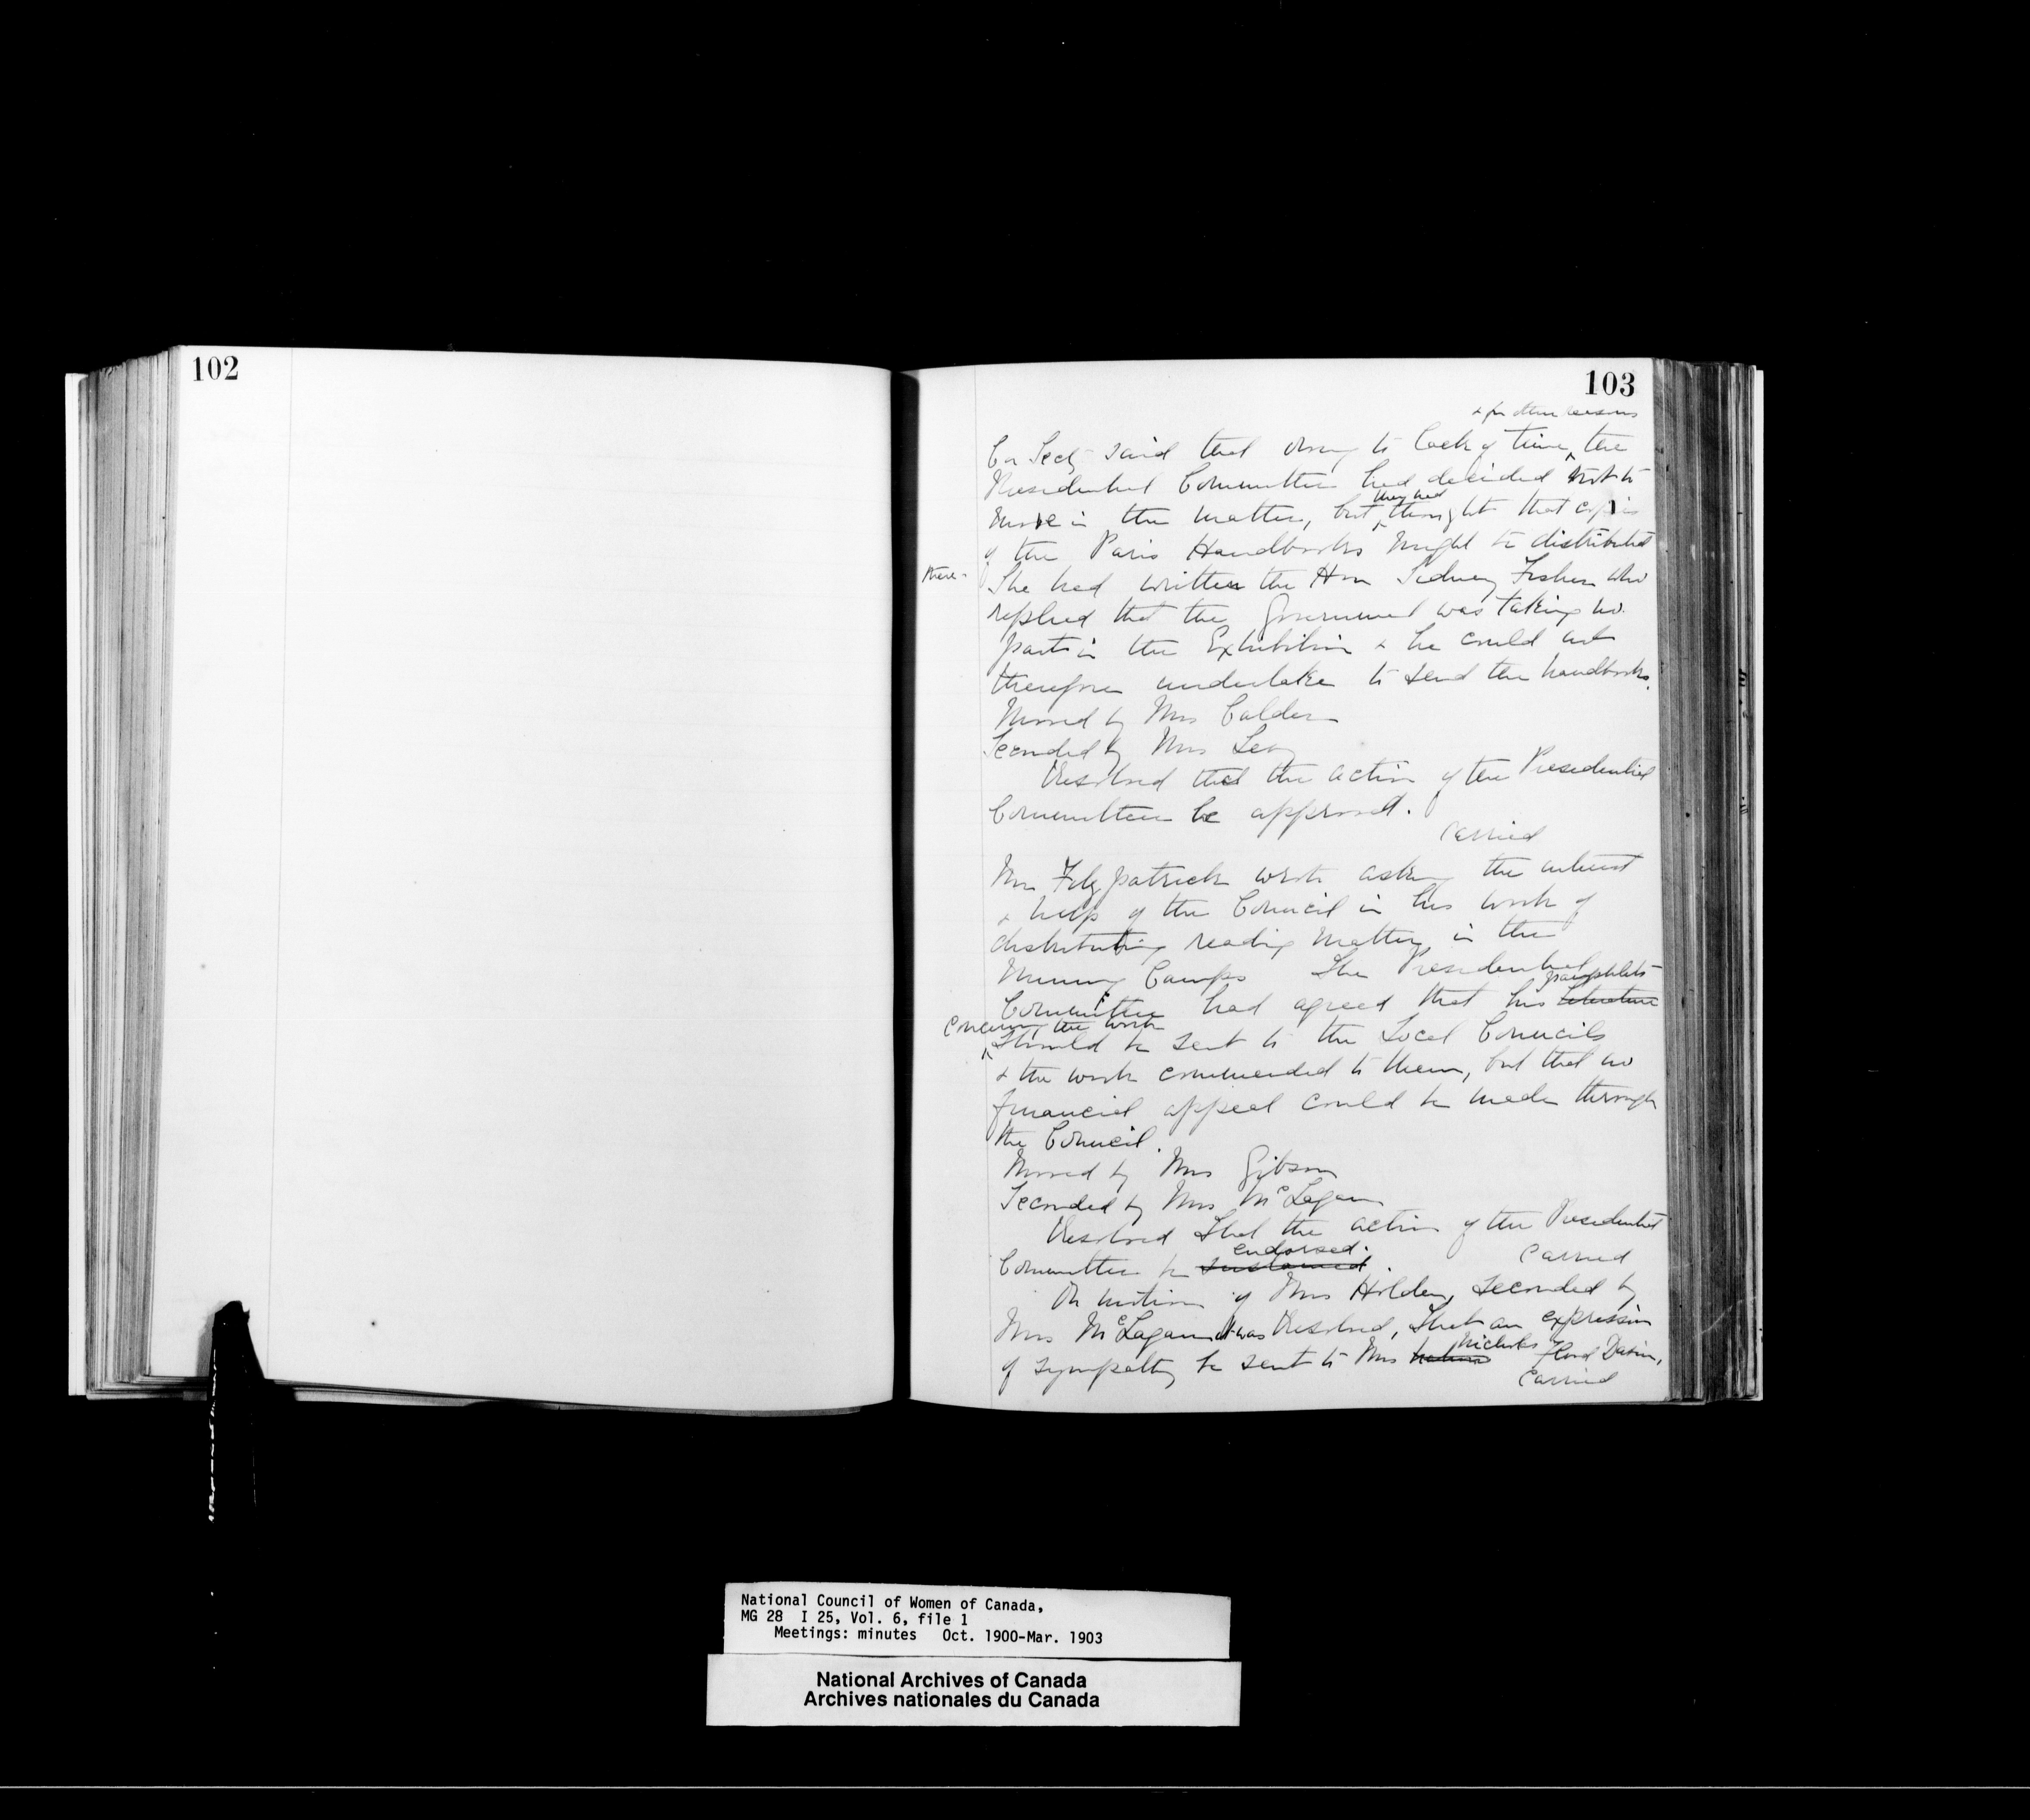 102
103
& for other reasons
Cor Secty said that owing to lack of time, the
Presidential Committee had decided not to
move in the matter, but they had thought that copies
of the Paris Handbooks might be distributed
there.
She had written the Hon Sidney Fisher who
replied that the Government was taking no
part in the Exhibition & he could not
therefore undertake to send the handbooks.
Moved by Mrs Calder
Seconded by Mrs Leary
Resolved that the action of the Presidential
Committee be approved.
Carried
Mr Fitzpatrick wrote asking the interest
& help of the Council in his work of
distributing reading matter in the
Mining Camps The Presidential
pamphlets
Committee had agreed that his literature
concerning the work
should be sent to the Local Councils
& the work commended to them, but that no
financial appeal could be made through
the Council.
Moved by Mrs Gibson
Seconded by Mrs McLagan
Resolved That the action of the Presidential
endorsed.
Committee be sustained. Carried
On motion of Mrs Holden, seconded by
Mrs McLagan it was Resolved, That an expression
of sympathy be sent to Mrs Nicholas Flood Davin,
Carried
National Council of Women of Canada,
MG 28 I 25, Vol. 6, file 1
Meetings: minutes Oct. 1900-Mar. 1903
National Archives of Canada
Archives nationales du Canada